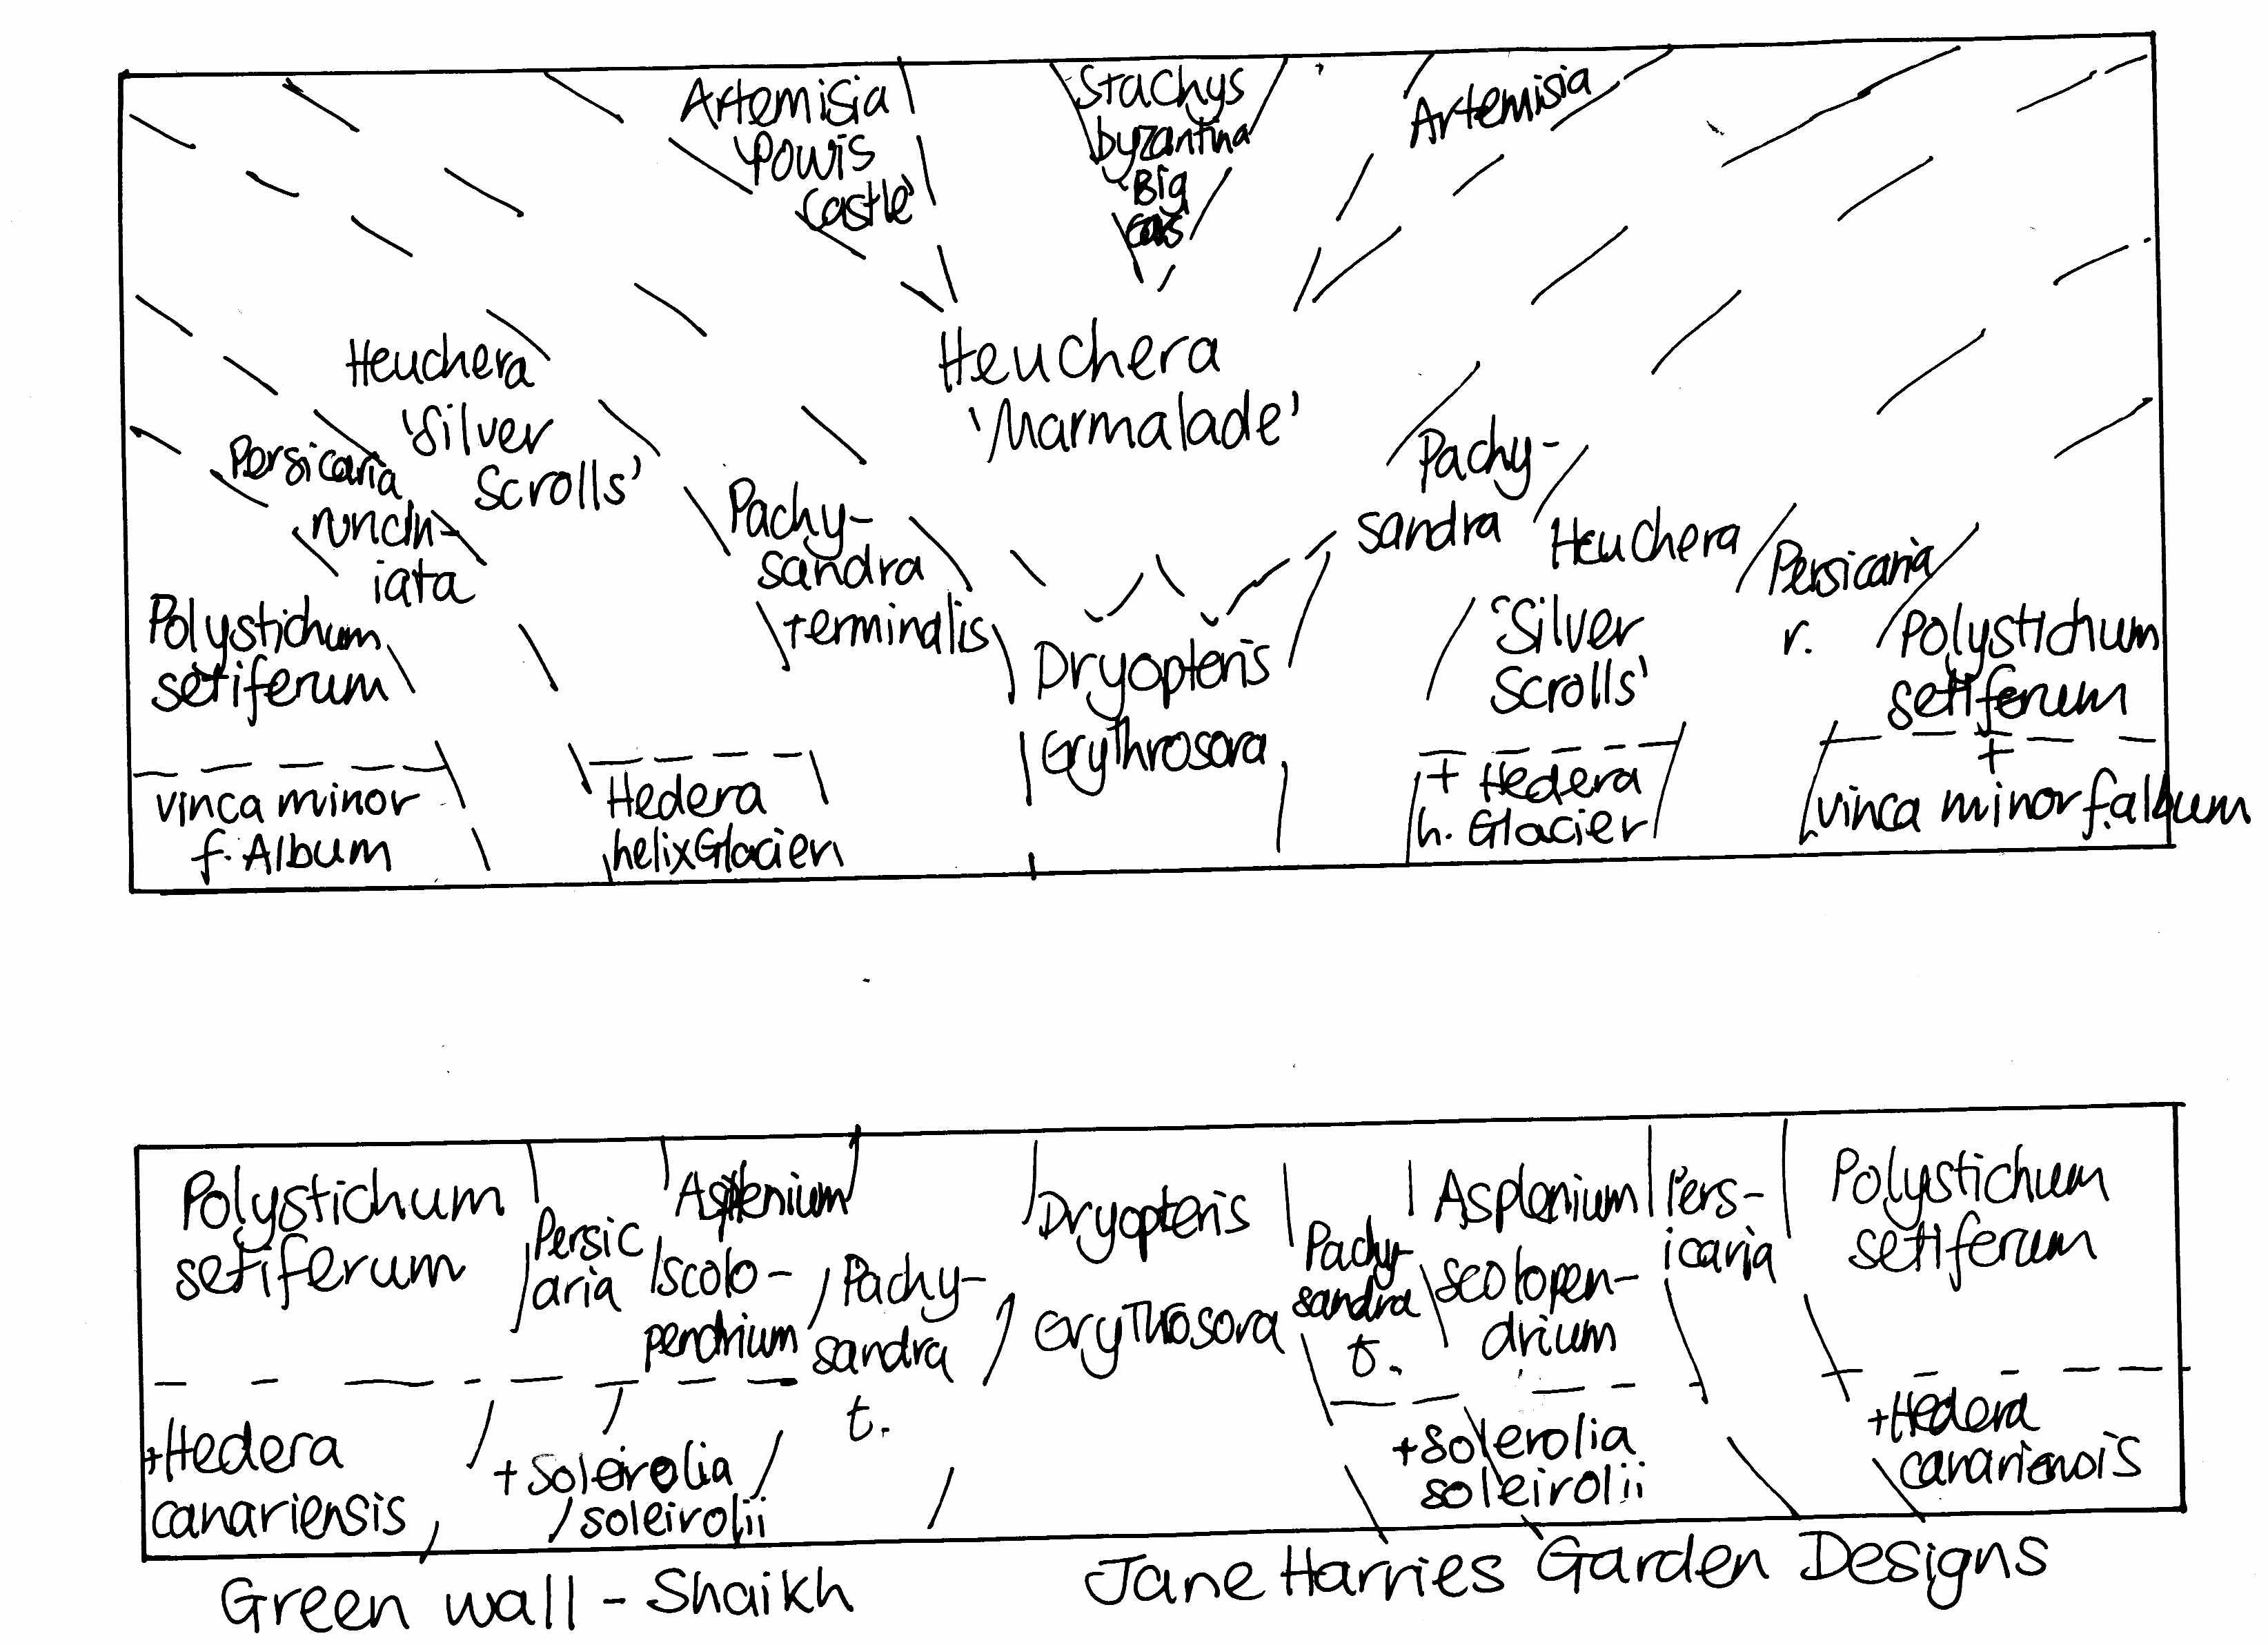 Artemisia
'Powis
Castle'
Stachys
byzantina
'Big
Ears'
Artemisia
Heuchera
'Silver
Scrolls'
Heuchera
'Marmalade'
Persicaria
runcin-
iata
Pachy-
sandra
terminalis
Pachy-
sandra
Heuchera
'Silver
Scrolls'
Persicaria
r.
Polystichum
setiferum
Dryopteris
Erythrosora
Polystichum
setiferum
+
vinca minor
f. Album
Hedera
helix Glacier
+ Hedera
h. Glacier
vinca minor f. album
Polystichum
setiferum
Persic
aria
Asplenium
scolo-
pendrium
Pachy-
sandra
t.
Dryopteris
Erythrosora
Pachy-
sandra
t.
Asplenium
scolopen-
drium
Pers-
icaria
Polystichum
setiferum
+Hedera
canariensis
+Soleirolia
soleirolii
+Solerolia
soleirolii
+Hedera
canariensis
Green wall - Shaikh
Jane Harries Garden Designs